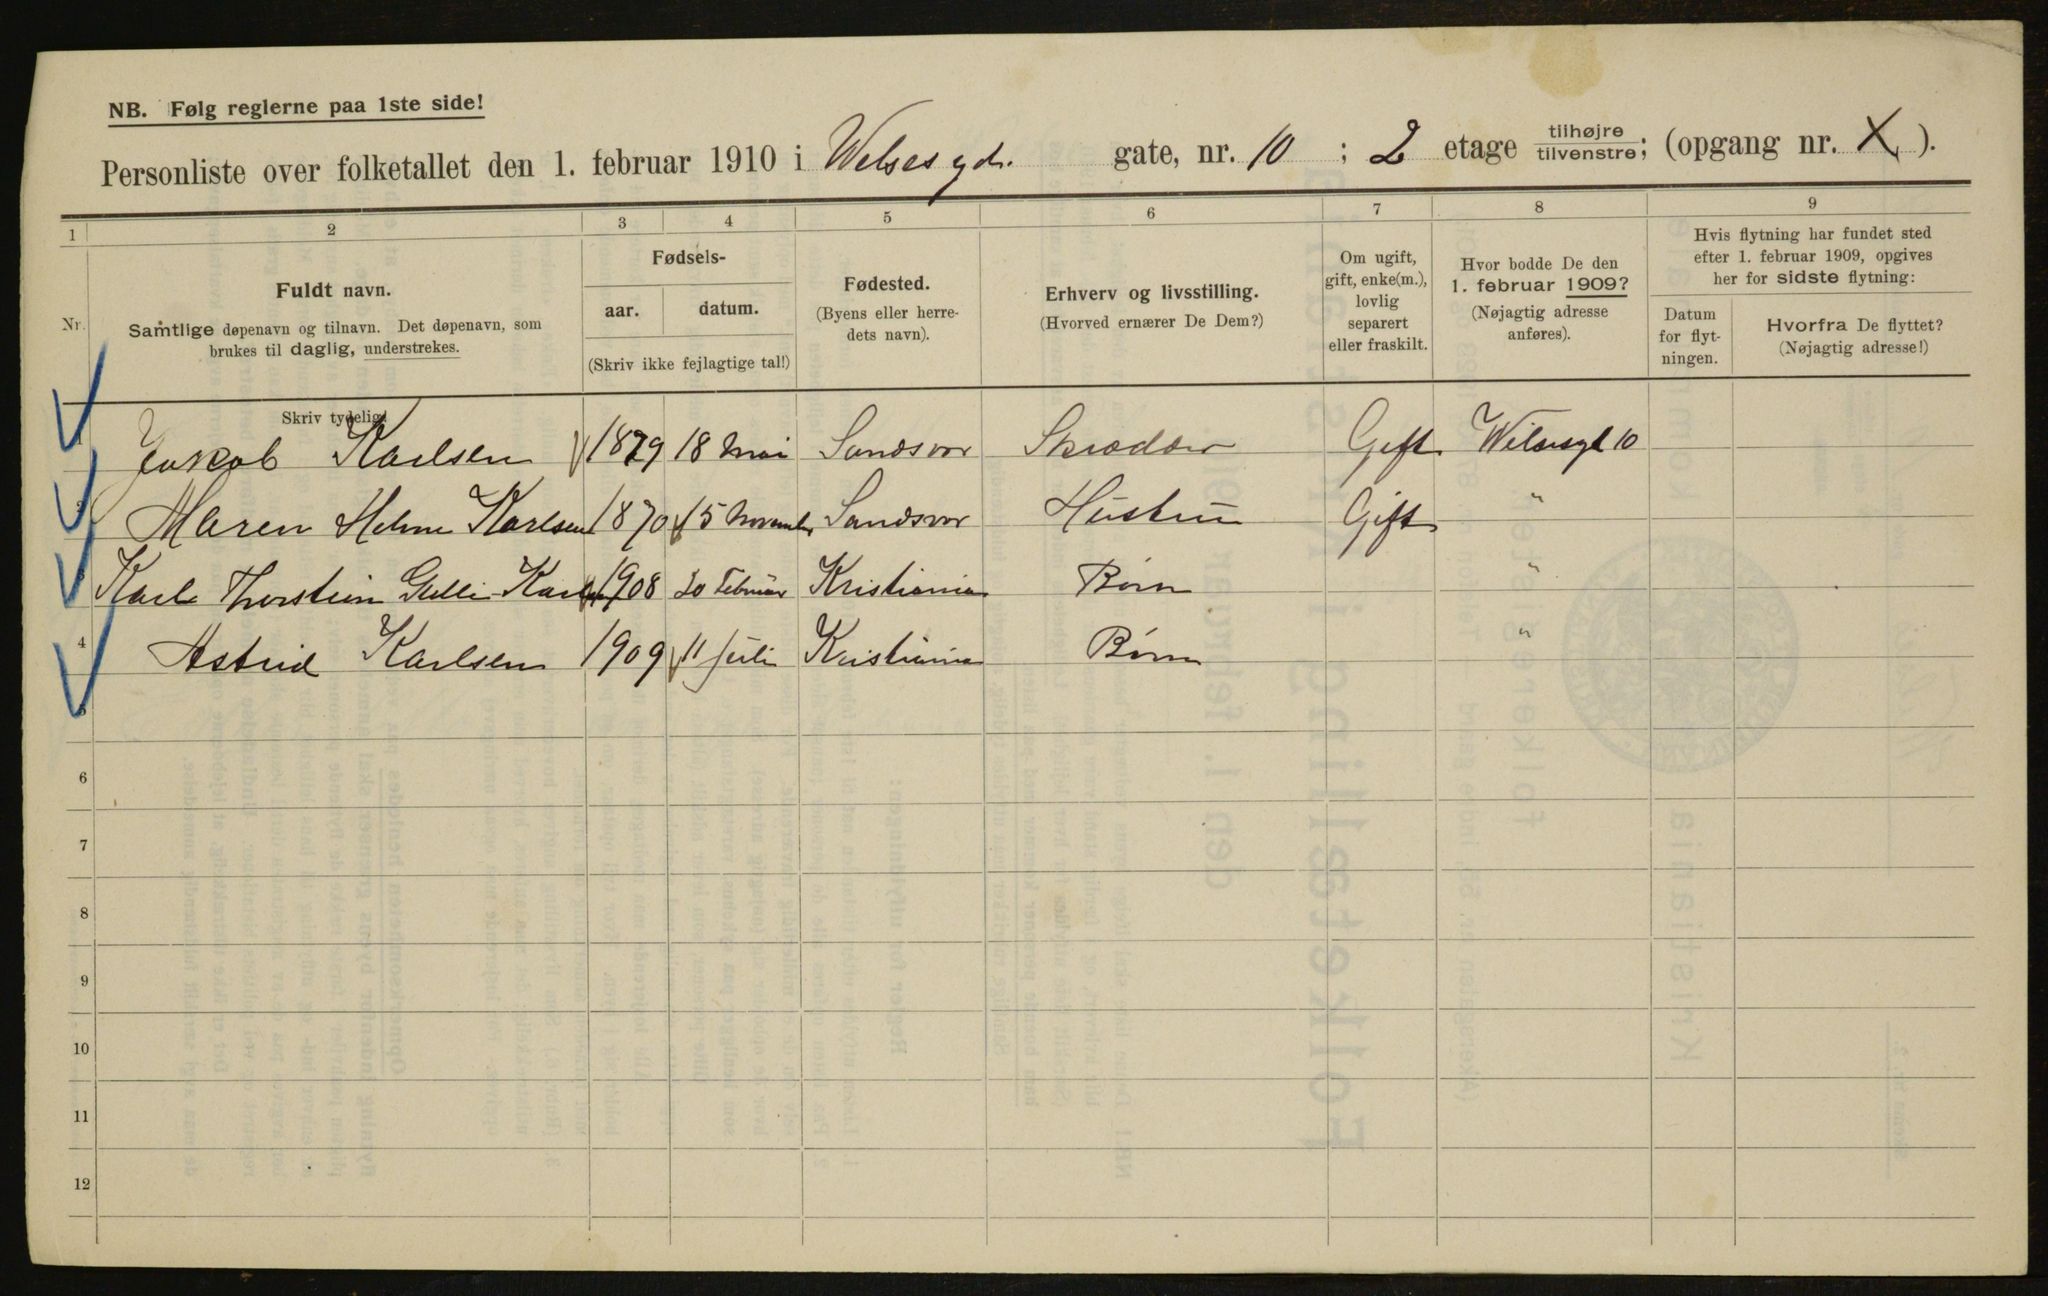 NB. Følg reglerne paa 1ste side!
Personliste over folketallet den 1. februar 1910 i Welses gd. gate, nr. 10 ; 2 etage tilhøjre/tilvenstre; (opgang nr. X ).
1 2 3 4 5 6 7 8 9
Nr.
Fuldt navn.
Samtlige døpenavn og tilnavn. Det døpenavn, som
brukes til daglig, understrekes.
Fødsels-
aar. datum.
(Skriv ikke fejlagtige tal!)
Fødested.
(Byens eller herre-
dets navn).
Erhverv og livsstilling.
(Hvorved ernærer De Dem?)
Om ugift,
gift, enke(m.),
lovlig
separert
eller fraskilt.
Hvor bodde De den
1. februar 1909?
(Nøjagtig adresse
anføres).
Hvis flytning har fundet sted
efter 1. februar 1909, opgives
her for sidste flytning:
Datum
for flyt-
ningen.
Hvorfra De flyttet?
(Nøjagtig adresse!)
Skriv tydelig!
Jakob Karlsen 1879 18 Mai Sandsvær Skrædder Gift 10
2 Maren Helene Karlsen 1870 15 November Sandsvær Hustru Gift "
3 Karl Thorstein Karlsen 1908 20 Februar Kristiania Børn "
4 Astrid Karlsen 1909 11 juli Kristiania Børn "
5
6
7
8
9
10
11
12